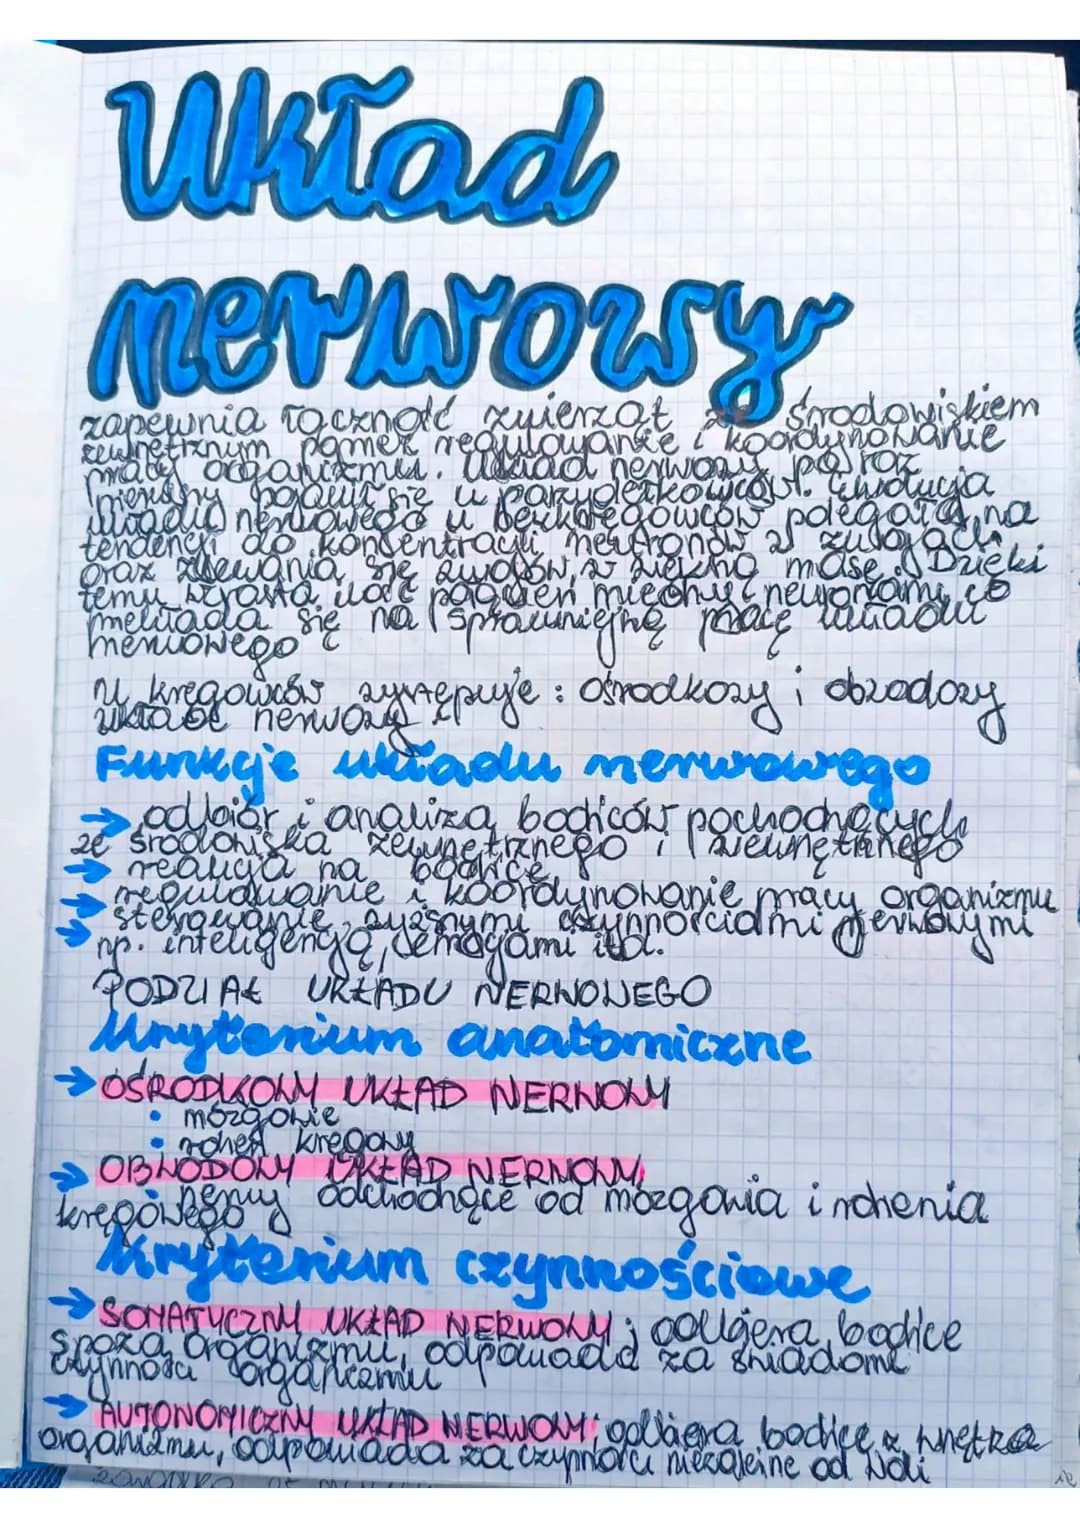 Układ
nerwowy
zapewnia łączność zwierząt ze środowiskiem
zewnętrznym poprzez regulowanie i koordynowanie
pracy organizmu. Układ nerwowy po raz
pierwszy pojawił się u parzydełkowców. Ewolucja
układu nerwowego u bezkręgowców polegała na
tendencji do koncentracji neuronów w zwojach
oraz zlewania się zwojów w większą masę. Dzięki
temu wzrasta ilość połączeń między neuronami, co
przekłada się na sprawniejszą pracę układu
nerwowego
U kręgowców występuje: ośrodkowy i obwodowy
układ nerwowy
Funkcje układu nerwowego
→ odbiór i analiza bodźców pochodzących
ze środowiska zewnętrznego i wewnętrznego
→ reakcja na bodźce
→ regulowanie i koordynowanie pracy organizmu
→ sterowanie wyższymi czynnościami nerwowymi
np. inteligencją, emocjami itd.
PODZIAŁ UKŁADU NERWOWEGO
Kryterium anatomiczne
→ OŚRODKOWY UKŁAD NERWOWY
• mózgowie
• rdzeń kręgowy
→ OBWODOWY UKŁAD NERWOWY
• nerwy odchodzące od mózgowia i rdzenia
kręgowego
Kryterium czynnościowe
→ SOMATYCZNY UKŁAD NERWOWY; odbiera bodźce
spoza organizmu, odpowiada za świadome
czynności organizmu
→ AUTONOMICZNY UKŁAD NERWOWY; odbiera bodźce z wnętrza
organizmu, odpowiada za czynności niezależne od woli